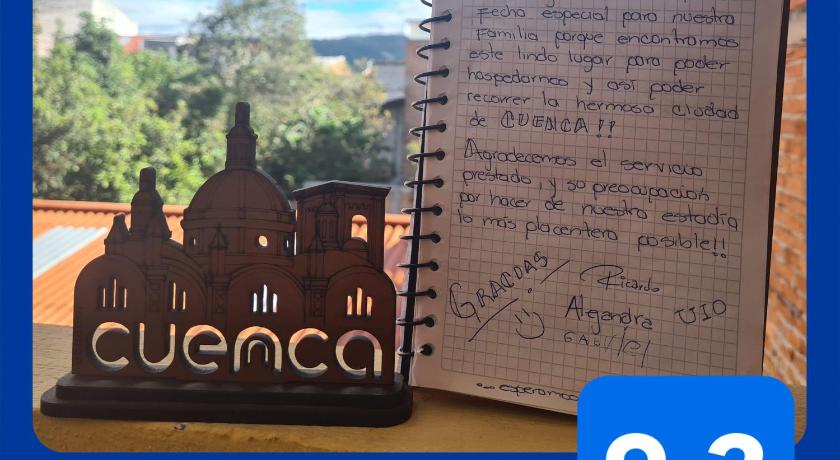 Fecha especial para nuestra
Familia porque encontramos
este lindo lugar para poder
hospedarnos y asi poder
recorrer la hermosa ciudad
de CUENCA!!
Agradecemos el servicio
prestado, y su preocupación
por hacer de nuestra estadía
lo más placentera posible!!
GRACIAS
Ricardo
Alejandra UIO
Gabriel
esperamos
cuenca